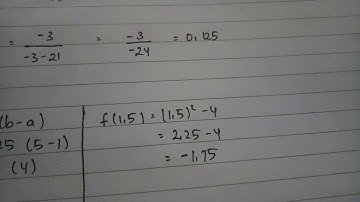 = -3 / -3-21 = -3 / -24 = 0,125
(b-a)
25 (5-1)
(4)
f(1,5) = (1,5)² -4
= 2,25 -4
= -1,75